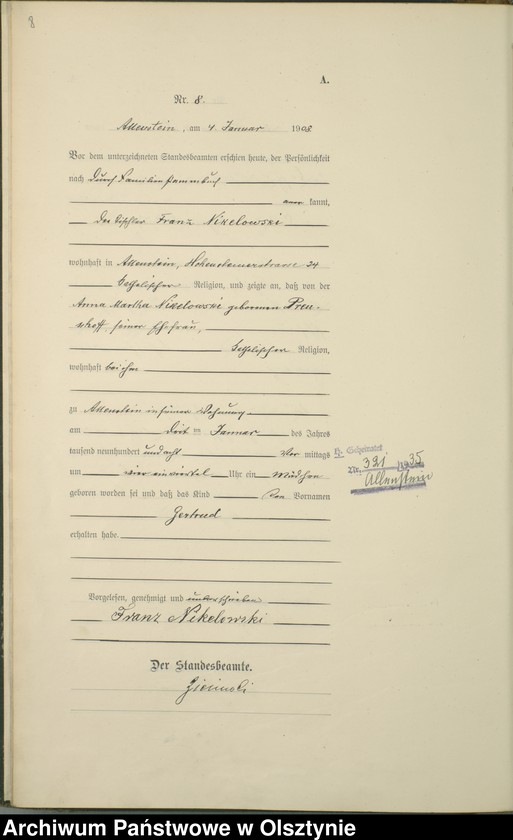 8
A.
Nr. 8.
Allenstein, am 4 Januar 1908
Vor dem unterzeichneten Standesbeamten erschien heute, der Persönlichkeit
nach durch Familienstammbuch
kannt,
Der Tischler Franz Nikelowski
wohnhaft in Allenstein, Hohensteinerstrasse 34
katholischer Religion, und zeigte an, daß von der
Anna Martha Nikelowski geborenen Preu-
schoff, seiner Ehefrau,
katholischer Religion,
wohnhaft bei ihm
zu Allenstein in seiner Wohnung
am dritten Januar des Jahres
tausend neunhundert und acht Vor mittags
um vier einviertel Uhr ein Mädchen
geboren worden sei und daß das Kind den Vornamen
Gertrud
erhalten habe.
Vorgelesen, genehmigt und unterschrieben
Franz Nikelowski
Der Standesbeamte.
Geheiratet
Nr. 321 /1935
Allenstein
Archiwum Państwowe w Olsztynie